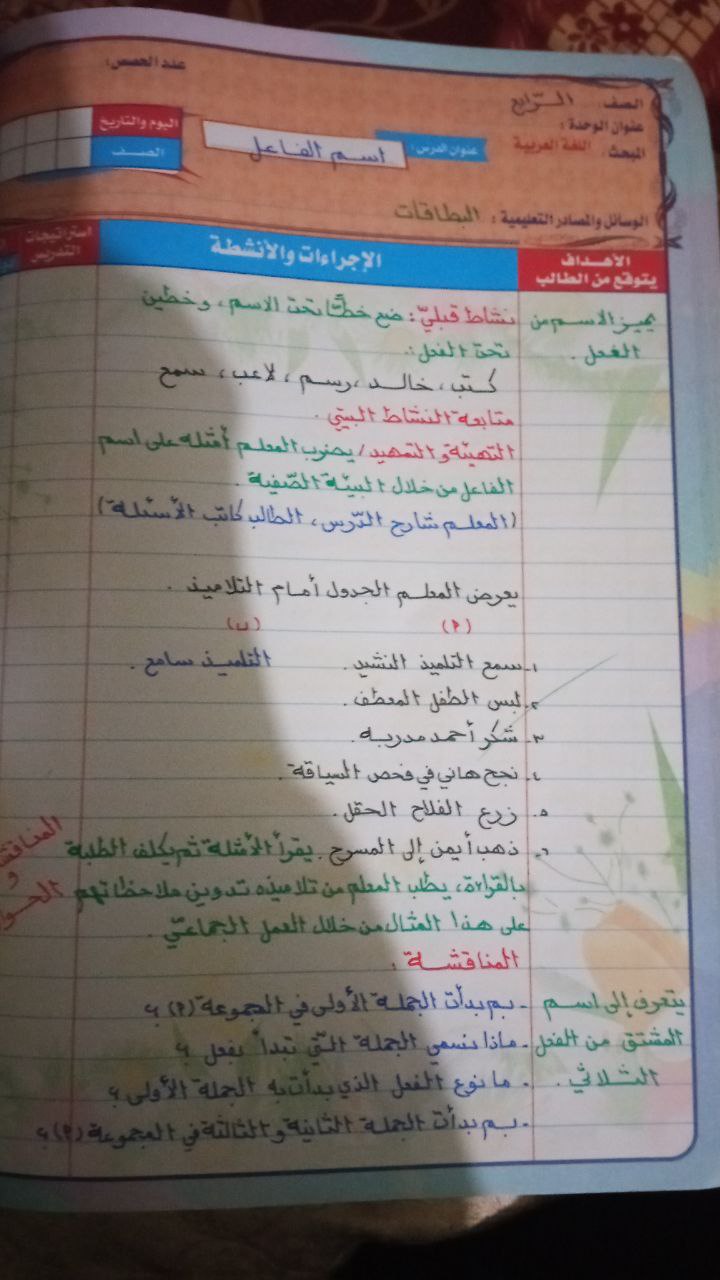 عدد الحصص:
الصف: الرّابع
عنوان الوحدة:
المبحث: اللغة العربية
عنوان الدرس: اسم الفاعل
اليوم والتاريخ
الصف
الوسائل والمصادر التعليمية: البطاقات
الأهداف
يتوقع من الطالب
الإجراءات والأنشطة
استراتيجيات
التدريس
يميز الاسم من
الفعل.
نشاط قبليّ: ضع خطًّا تحت الاسم، وخطين
تحت الفعل:
كتب، خالد، رسم، لاعب، سمع
متابعة النشاط البيتي.
التهيئة والتمهيد/ يضرب المعلم أمثلة على اسم
الفاعل من خلال البيئة الصّفية.
(المعلم شارح الدّرس، الطالب كاتب الأسئلة)
يعرض المعلم الجدول أمام التلاميذ.
(أ) (ب)
١. سمع التلميذ النشيد. التلميذ سامع.
٢. لبس الطفل المعطف.
٣. شكر أحمد مدربه.
٤. نجح هاني في فحص السياقة.
٥. زرع الفلاح الحقل.
٦. ذهب أيمن إلى المسرح. يقرأ الأمثلة ثم يكلف الطلبة
بالقراءة، يطلب المعلم من تلاميذه تدوين ملاحظاتهم
على هذا المثال من خلال العمل الجماعيّ.
المناقشة
و
المناقشة:
يتعرف إلى اسم
المشتق من الفعل
الثلاثي.
- بم بدأت الجملة الأولى في المجموعة (أ)؟
- ماذا نسمي الجملة التّي تبدأ بفعل؟
- ما نوع الفعل الذي بدأت به الجملة الأولى؟
- بم بدأت الجملة الثانية والثالثة في المجموعة (أ)؟